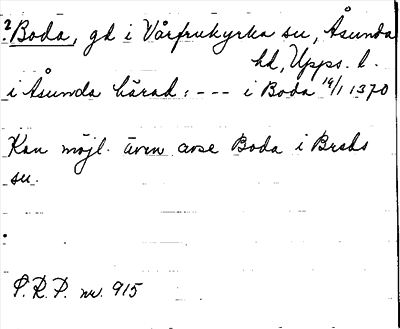 ? Boda, gd i Vårfrukyrka sn, Åsunda
hd, Upps. l.
i Åsunda härad: --- i Boda 14/1 1370
Kan möjl. även avse Boda i Breds
sn.
P.R.P. nr. 915